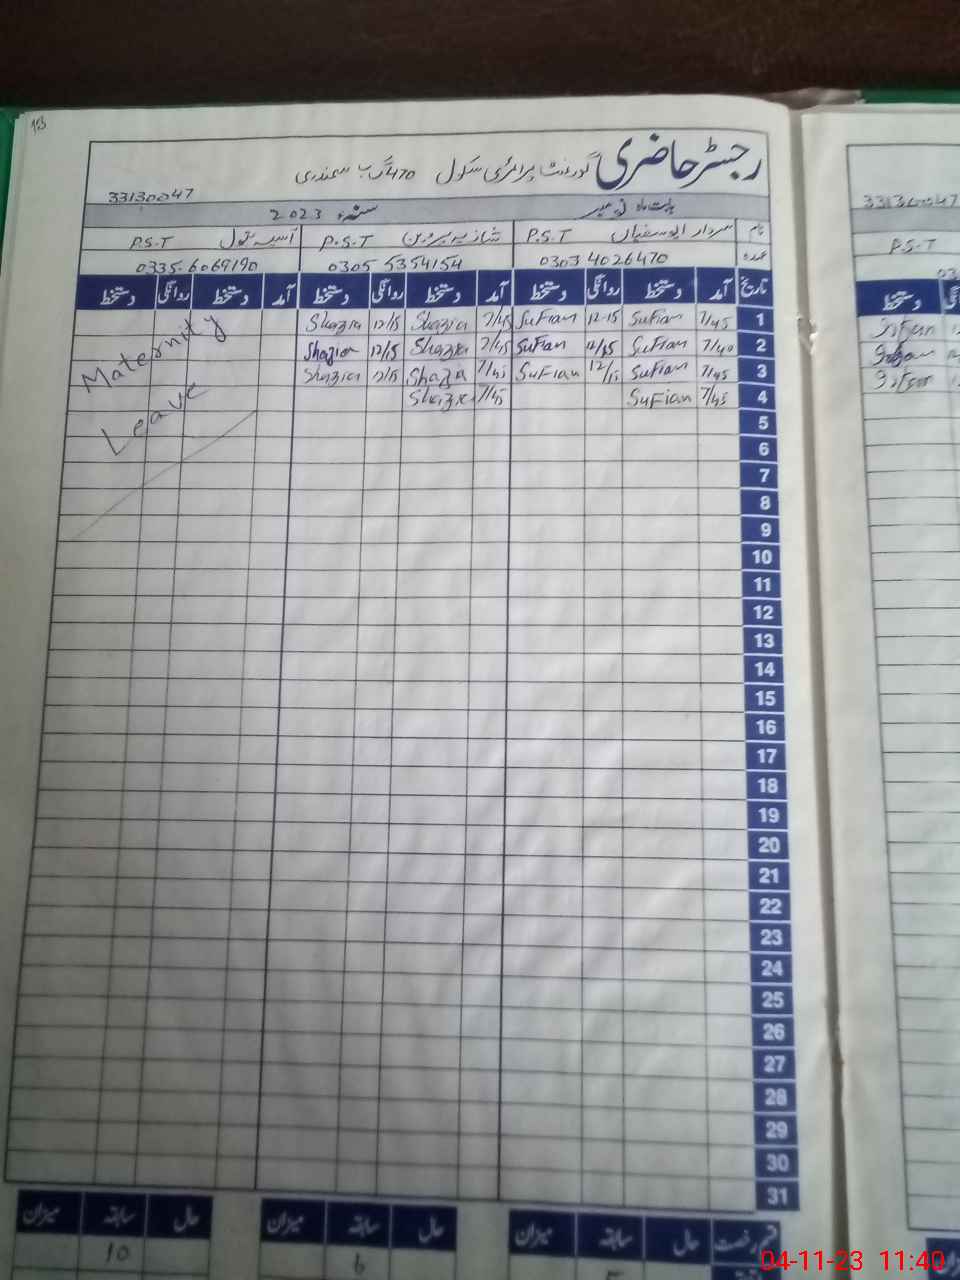 رجسٹر حاضری گورنمنٹ پرائمری سکول 470 گ ب سمندری
33130047
بابت ماہ نومبر سنہء 2023
نام سردار ابوسفیان P.S.T شازیہ پروین P.S.T آسیہ بتول P.S.T
عہدہ 0303 4026470 0305 5354154 0335-6069190
تاریخ آمد دستخط روانگی دستخط آمد دستخط روانگی دستخط آمد دستخط روانگی دستخط
1 7/45 Sufian 12-15 Sufian 7/45 Shazia 12/15 Shazia
2 7/40 Sufian 12/15 Sufian 7/45 Shazia 12/15 Shazia
3 7/45 Sufian 12/15 Sufian 7/45 Shazia 12/15 Shazia
4 7/45 Sufian 7/45 Shazia
Maternity
Leave
5
6
7
8
9
10
11
12
13
14
15
16
17
18
19
20
21
22
23
24
25
26
27
28
29
30
31
قسم رخصت حال سابقہ میزان حال سابقہ میزان حال سابقہ میزان
6 10
33130047
P.S.T
دستخط
04-11-23 11:40